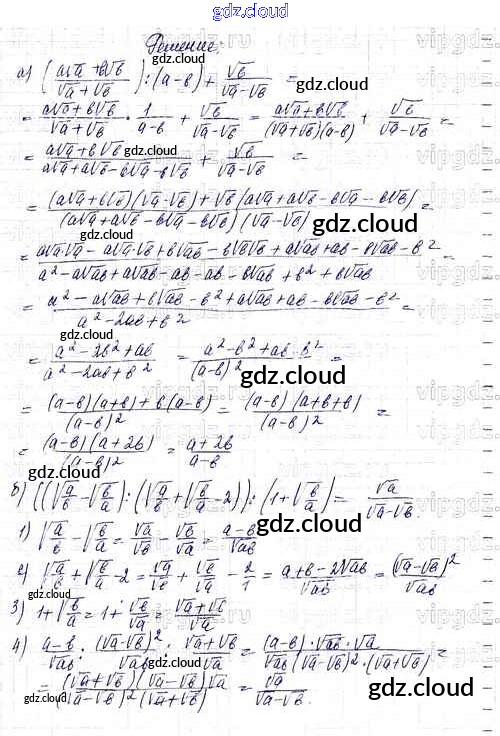 gdz.cloud
Решение:
а) (a√a + b√b / √a + √b) : (a-b) + √b / √a - √b =
= a√a + b√b / √a + √b · 1 / a-b + √b / √a - √b = a√a + b√b / (√a + √b)(a-b) + √b / √a - √b =
= a√a + b√b / a√a + a√b - b√a - b√b + √b / √a - √b =
= (a√a + b√b)(√a - √b) + √b (a√a + a√b - b√a - b√b) / (a√a + a√b - b√a - b√b)(√a - √b) =
= a√a·√a - a√a·√b + b√ab - b√b√b + a√ab + ab - b√ab - b² / a² - a√ab + a√ab - ab - ab - b√ab + b² + b√ab =
= a² - a√ab + b√ab - b² + a√ab + ab - b√ab - b² / a² - 2ab + b² =
= a² - 2b² + ab / a² - 2ab + b² = a² - b² + ab - b² / (a-b)² =
= (a-b)(a+b) + b(a-b) / (a-b)² = (a-b)(a+b+b) / (a-b)² =
= (a-b)(a+2b) / (a-b)² = a+2b / a-b
б) ((√a/b - √b/a) : (√a/b + √b/a - 2)) : (1 + √b/a) = √a / √a - √b.
1) √a/b - √b/a = √a/√b - √b/√a = a-b / √ab
2) √a/b + √b/a - 2 = √a/√b + √b/√a - 2/1 = a+b-2√ab / √ab = (√a - √b)² / √ab
3) 1 + √b/a = 1 + √b/√a = √a + √b / √a
4) a-b / √ab : (√a - √b)² / √ab : √a + √b / √a = (a-b)·√ab·√a / √ab (√a - √b)²·(√a + √b) =
= (√a + √b)(√a - √b)√a / (√a - √b)²(√a + √b) = √a / √a - √b.
gdz.cloud